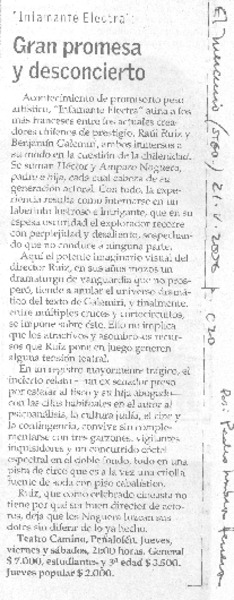 "Infamante Electra":
Gran promesa
y desconcierto
Acontecimiento de promisorio peso
artístico, "Infamante Electra" aúna a los
más franceses entre los actuales crea-
dores chilenos de prestigio, Raúl Ruiz y
Benjamín Galemiri, ambos inmersos a
su modo en la cuestión de la chilenidad.
Se suman Héctor y Amparo Noguera,
padre e hija, cada cual cabeza de su
generación actoral. Con todo, la expe-
riencia resulta como internarse en un
laberinto brumoso e intrigante, que en su
espesa oscuridad el explorador recorre
con perplejidad y desaliento, sospechan-
do que no conduce a ninguna parte.
Aquí el potente imaginario visual del
director Ruiz, en sus años mozos un
dramaturgo de vanguardia que no pros-
peró, tiende a agotar el universo dramá-
tico del texto de Galemiri, y finalmente,
entre múltiples cruces y cortocircuitos,
se impone sobre éste. Ello no implica
que los atractivos y asombrosos recur-
sos que Ruiz pone en juego generen
alguna tensión teatral.
En un registro mayormente trágico, el
incierto relato un ex senador preso
por estafar al fisco y su hija abogada
con las citas habituales en el autor al
psicoanálisis, la cultura judía, el cine y
la contingencia, convive sin comple-
mentarse con tres garzones, vigilantes
inquisidores y un concurrido cóctel
espectral en el doble fondo, todo en una
pista de circo que es a la vez una criolla
fuente de soda con piso cabalístico.
Ruiz, que como celebrado cineasta no
tiene por qué ser buen director de acto-
res, deja que los Noguera luzcan sus
dotes sin diferir de lo ya hecho.
Teatro Camino, Peñalolén. Jueves,
viernes y sábados, 21:00 horas. General
$ 7.000, estudiantes y 3ª edad $ 3.500.
Jueves popular $ 2.000.
El Mercurio, Stgo, 21.V.2006 p. C20
Por Pedro Labra Herrera